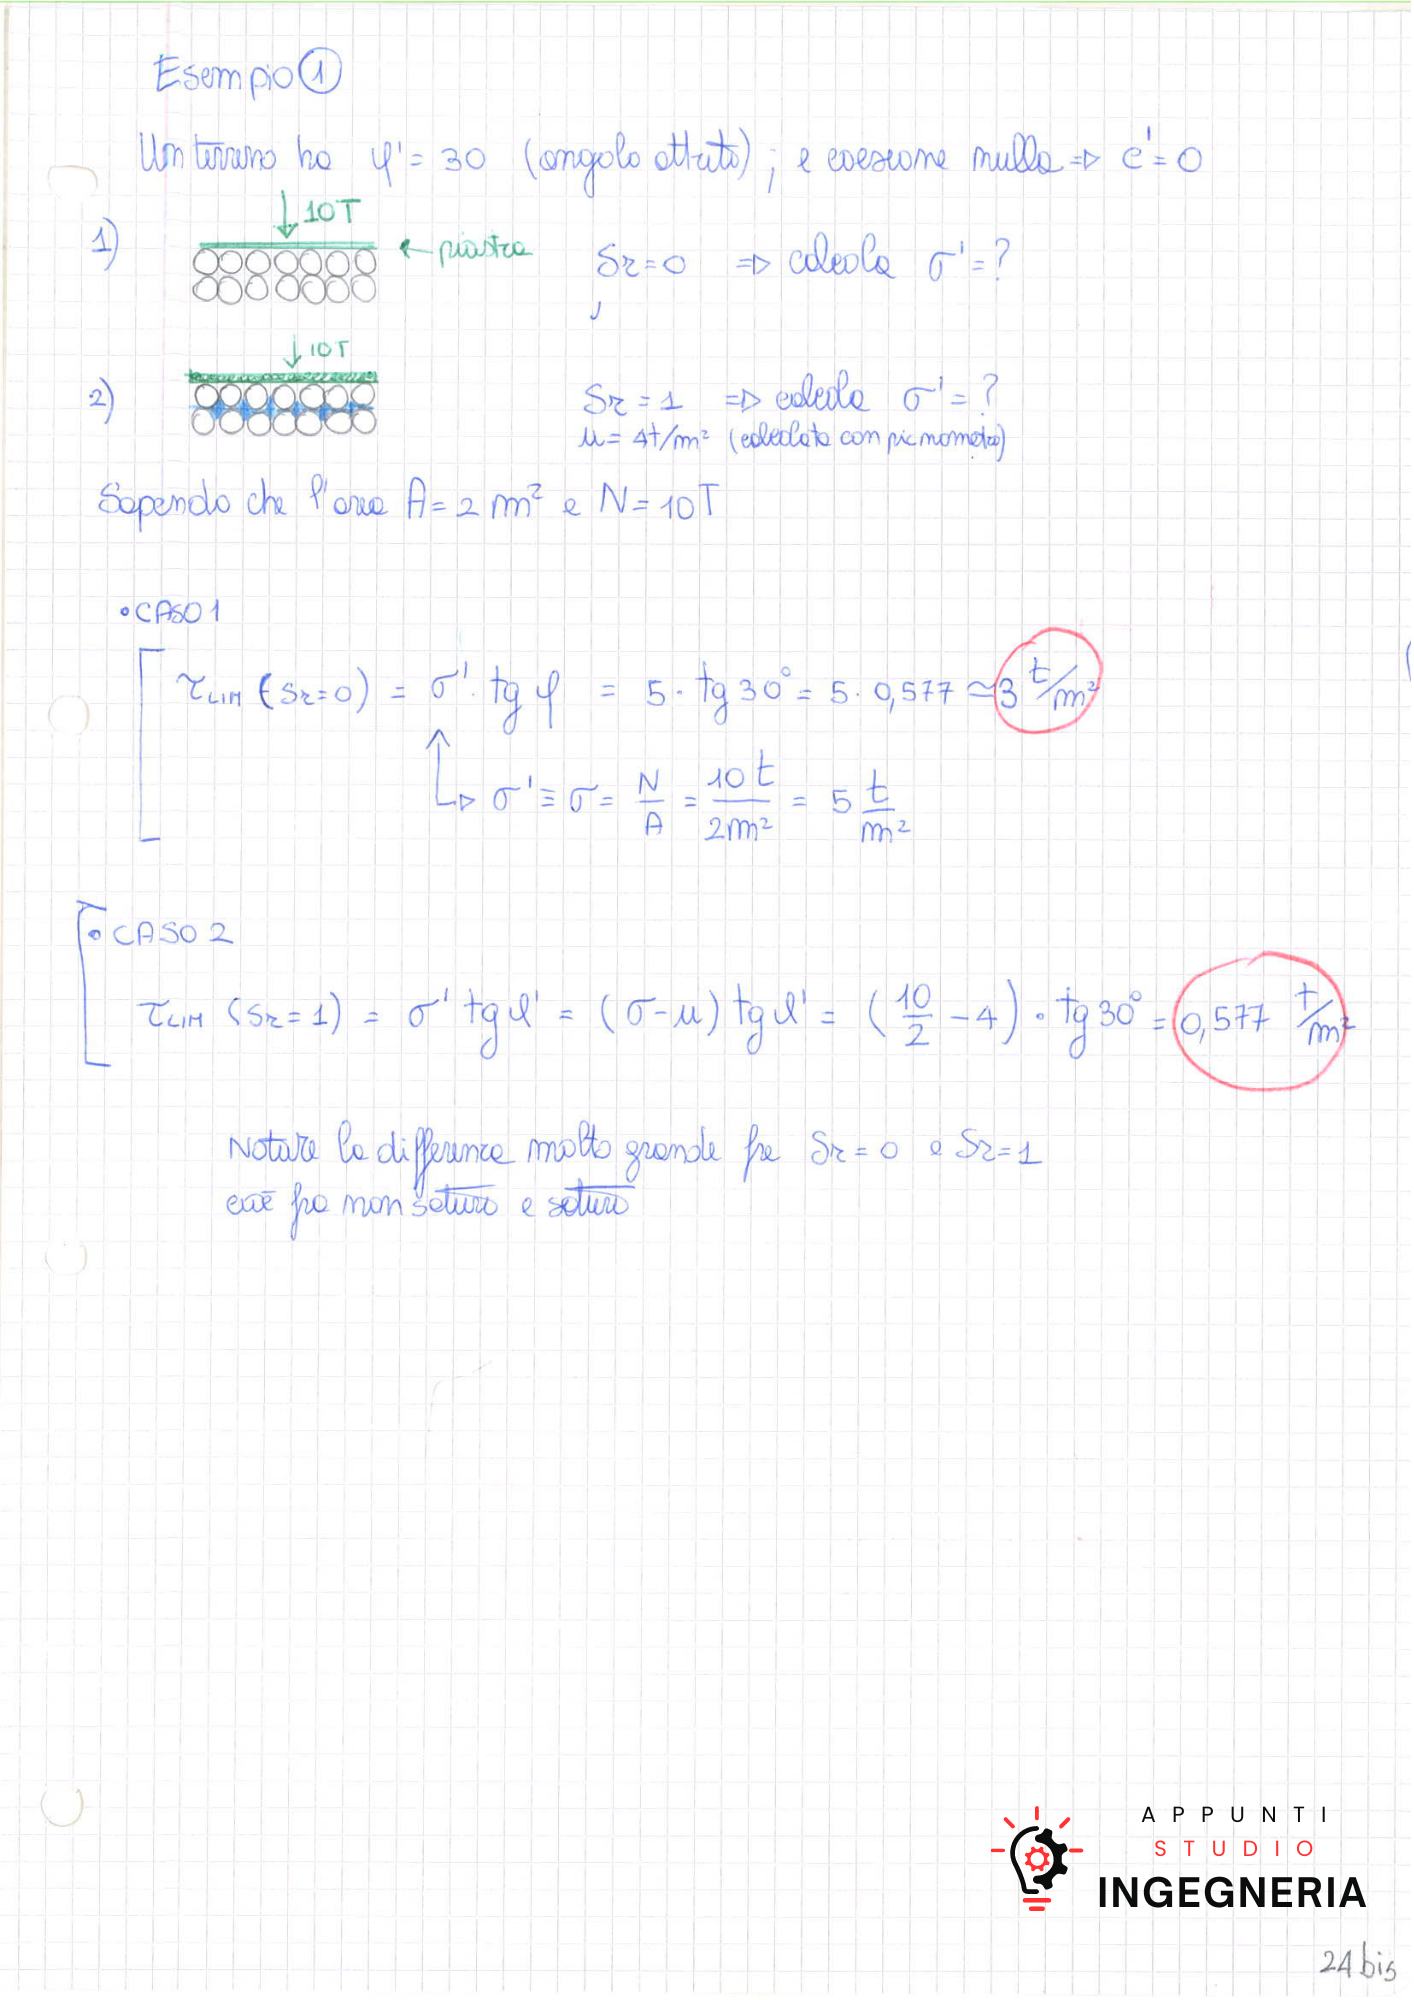 Esempio ①
Un terreno ha φ' = 30 (angolo attrito) ; e coesione nulla => c' = 0
1)
10T
← piastra
Sr = 0 => calcola σ' = ?
2)
10T
Sr = 1 => calcola σ' = ?
u = 4t/m² (calcolata con picnometro)
Sapendo che l'area A = 2 m² e N = 10T
• CASO 1
τLIM (Sr=0) = σ' · tg φ = 5 · tg 30° = 5 · 0,577 ≃ 3 t/m²
σ' ≡ σ = N/A = 10 t/2m² = 5 t/m²
• CASO 2
τLIM (Sr=1) = σ' tg φ' = (σ-u) tg φ' = (10/2 - 4) · tg 30° = 0,577 t/m²
Notare la differenza molto grande fra Sr = 0 e Sr = 1
cioè fra non saturo e saturo
APPUNTI
STUDIO
INGEGNERIA
24 bis